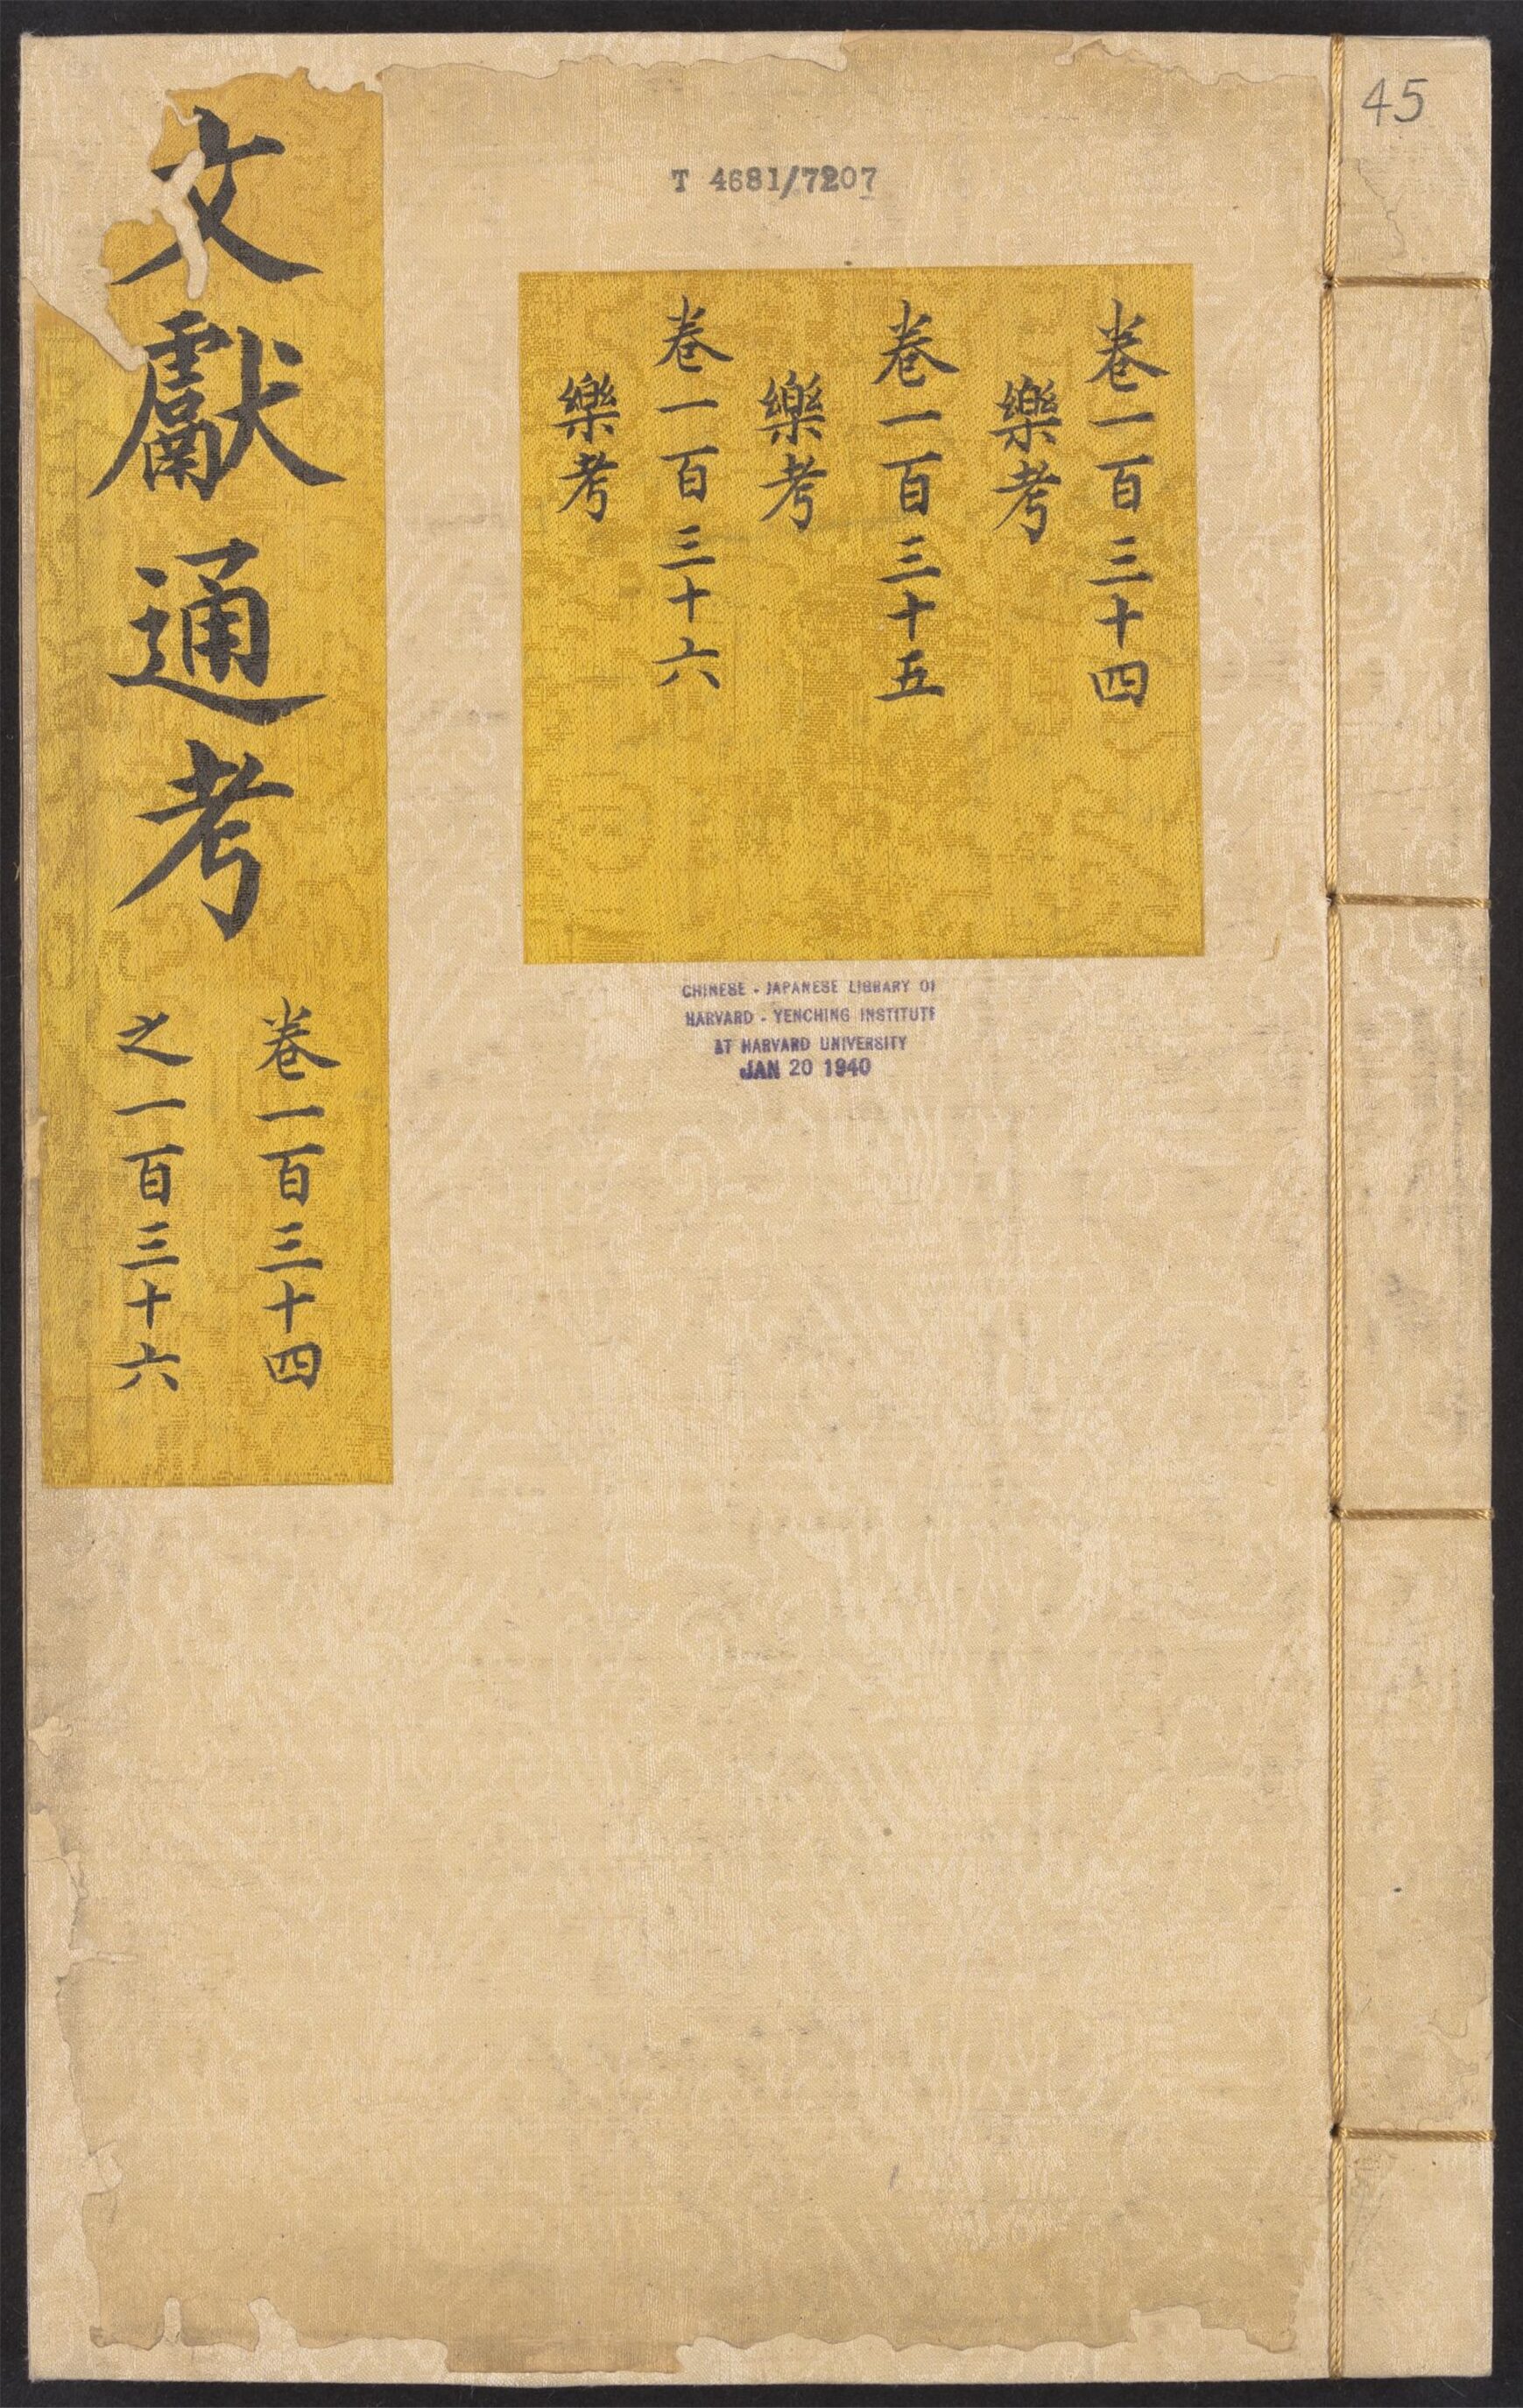 45
T 4681/7207
卷一百三十四
樂考
卷一百三十五
樂考
卷一百三十六
樂考
文獻通考
卷一百三十四
之一百三十六
CHINESE - JAPANESE LIBRARY OF
HARVARD - YENCHING INSTITUTE
AT HARVARD UNIVERSITY
JAN 20 1940